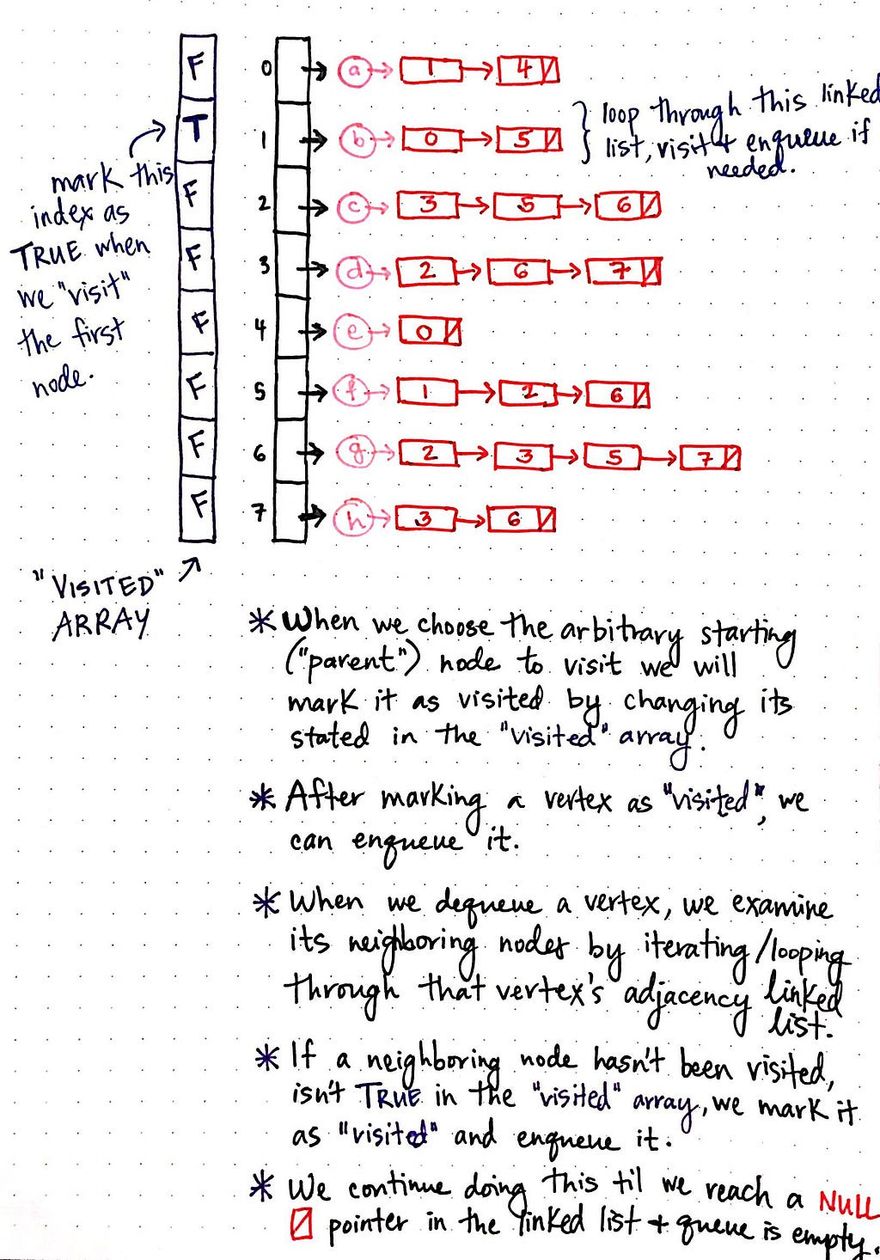 F
T
F
F
F
F
F
F
mark this
index as
TRUE when
we "visit"
the first
node.
"VISITED"
ARRAY
0 a 1 4
1 b 0 5
2 c 3 5 6
3 d 2 6 7
4 e 0
5 f 1 2 6
6 g 2 3 5 7
7 h 3 6
loop through this linked
list, visit + enqueue if
needed.
* When we choose the arbitrary starting
("parent") node to visit we will
mark it as visited by changing its
stated in the "visited" array.
* After marking a vertex as "visited", we
can enqueue it.
* When we dequeue a vertex, we examine
its neighboring nodes by iterating/looping
through that vertex's adjacency linked
list.
* If a neighboring node hasn't been visited,
isn't TRUE in the "visited" array, we mark it
as "visited" and enqueue it.
* We continue doing this til we reach a NULL
pointer in the linked list + queue is empty.